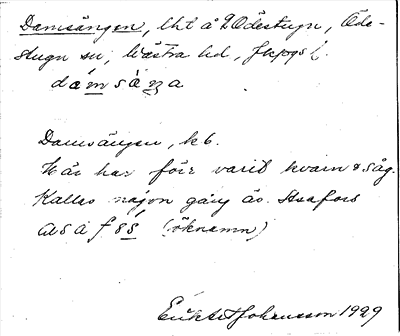 Damsängen, lht å Ödestugu, Öde-
stugu sn, Västra hd, Jkpgs l.
dámsàŋa
Damsängen, hb.
Här har förr varit kvarn & såg.
Kallas någon gång äv. Assafors
(öknamn)
Johansson 1929